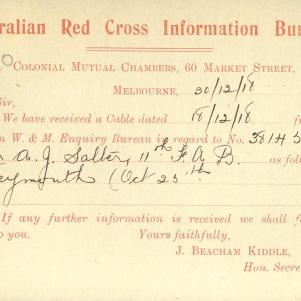 ralian Red Cross Information Bu
COLONIAL MUTUAL CHAMBERS, 60 MARKET STREET,
MELBOURNE, 30/12/18
Sir,
We have received a Cable dated 18/12/18 f
n W. & M. Enquiry Bureau in regard to No. 38143
A. J. Salter, 11th F. A. B. as follo
eymouth (Oct 25th
If any further information is received we shall f
o you. Yours faithfully,
J. BEACHAM KIDDLE,
Hon. Secre